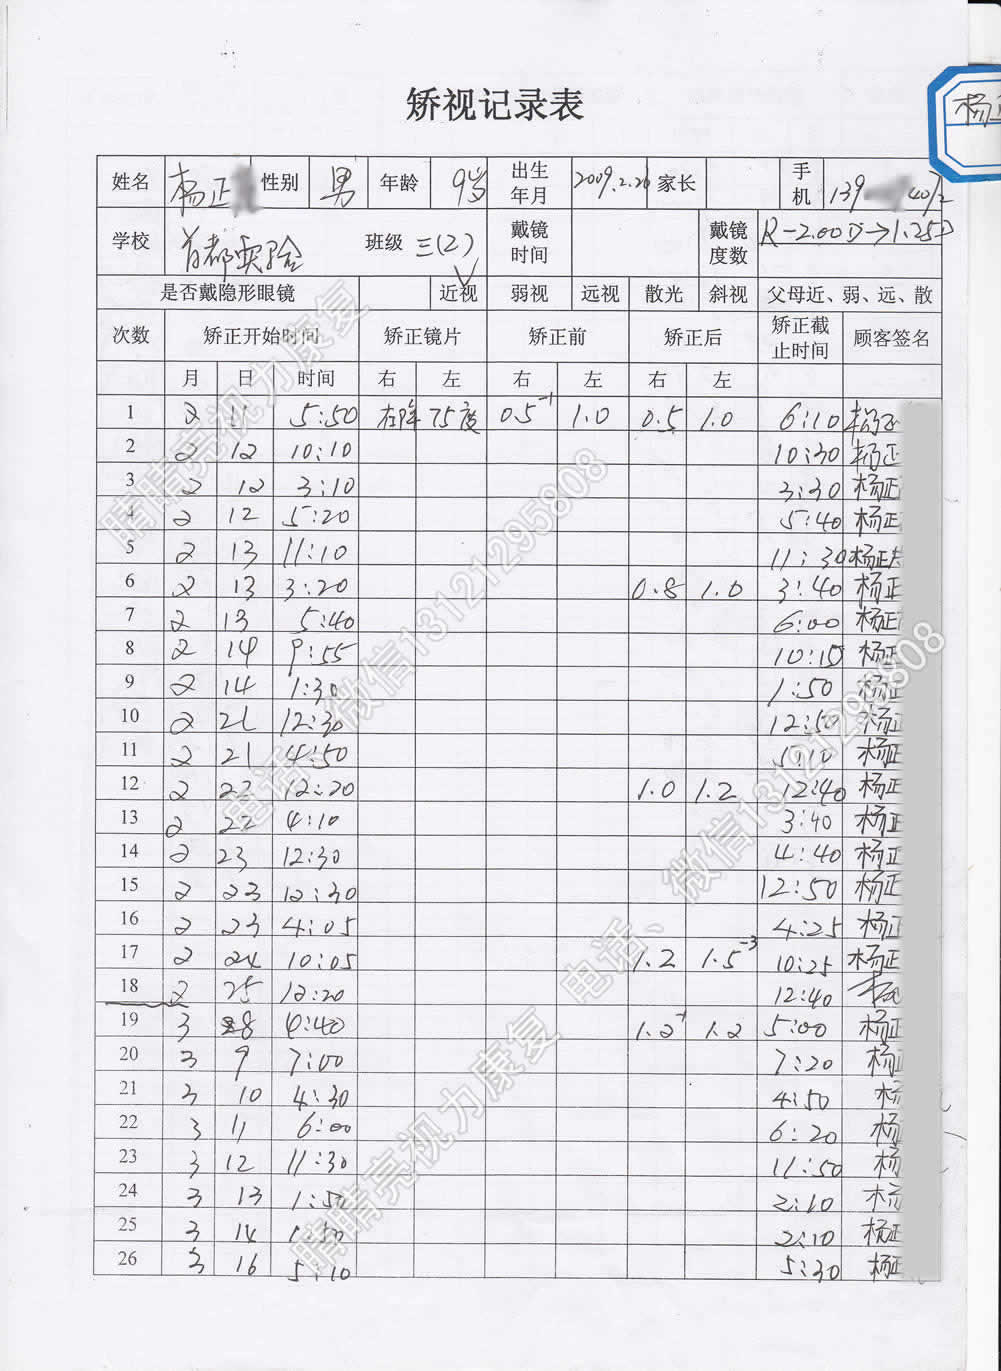 矫视记录表
杨
姓名 杨正 性别 男 年龄 9岁 出生年月 2009.2.26 家长 手机 139 40
学校 首都实验 班级 三(2) 戴镜时间 戴镜度数 R-2.00D→1.25D
是否戴隐形眼镜 近视 弱视 远视 散光 斜视 父母近、弱、远、散
次数 矫正开始时间 矫正镜片 矫正前 矫正后 矫正截止时间 顾客签名
月 日 时间 右 左 右 左 右 左
1 2 11 5:50 右降75度 0.5⁻¹ 1.0 0.5 1.0 6:10 杨正
2 2 12 10:10 10:30 杨正
3 2 12 3:10 3:30 杨正
4 2 12 5:20 5:40 杨正
5 2 13 11:10 11:30 杨正
6 2 13 3:20 0.8 1.0 3:40 杨正
7 2 13 5:40 6:00 杨正
8 2 14 9:55 10:15 杨正
9 2 14 1:30 1:50 杨正
10 2 21 12:30 12:50 杨正
11 2 21 4:50 5:10 杨正
12 2 22 12:20 1.0 1.2 12:40 杨正
13 2 22 4:10 3:40 杨正
14 2 23 12:30 4:40 杨正
15 2 23 12:30 12:50 杨正
16 2 23 4:05 4:25 杨正
17 2 24 10:05 1.2 1.5⁻³ 10:25 杨正
18 2 25 12:20 12:40
19 3 8 4:40 1.2⁻¹ 1.2 5:00 杨正
20 3 9 7:00 7:20 杨
21 3 10 4:30 4:50 杨
22 3 11 6:00 6:20 杨
23 3 12 11:30 11:50 杨
24 3 13 1:50 2:10 杨
25 3 14 1:50 2:10 杨正
26 3 16 5:10 5:30 杨正
睛睛亮视力康复 电话、微信13121295808
睛睛亮视力康复 电话、微信13121295808